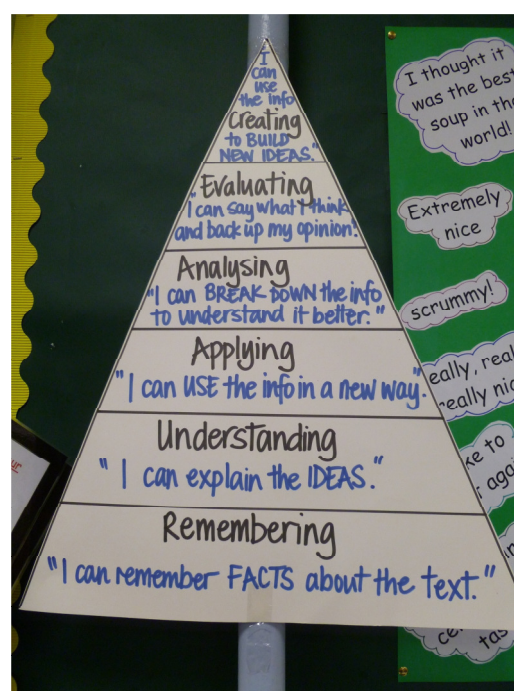 I
can
use
the info
Creating
to BUILD
NEW IDEAS."
Evaluating
"I can say what I think
and back up my opinion".
Analysing
"I can BREAK DOWN the info
to understand it better."
Applying
"I can USE the info in a new way."
Understanding
"I can explain the IDEAS."
Remembering
"I can remember FACTS about the text."
I thought it
was the best
soup in the
world!
Extremely
nice
scrummy!